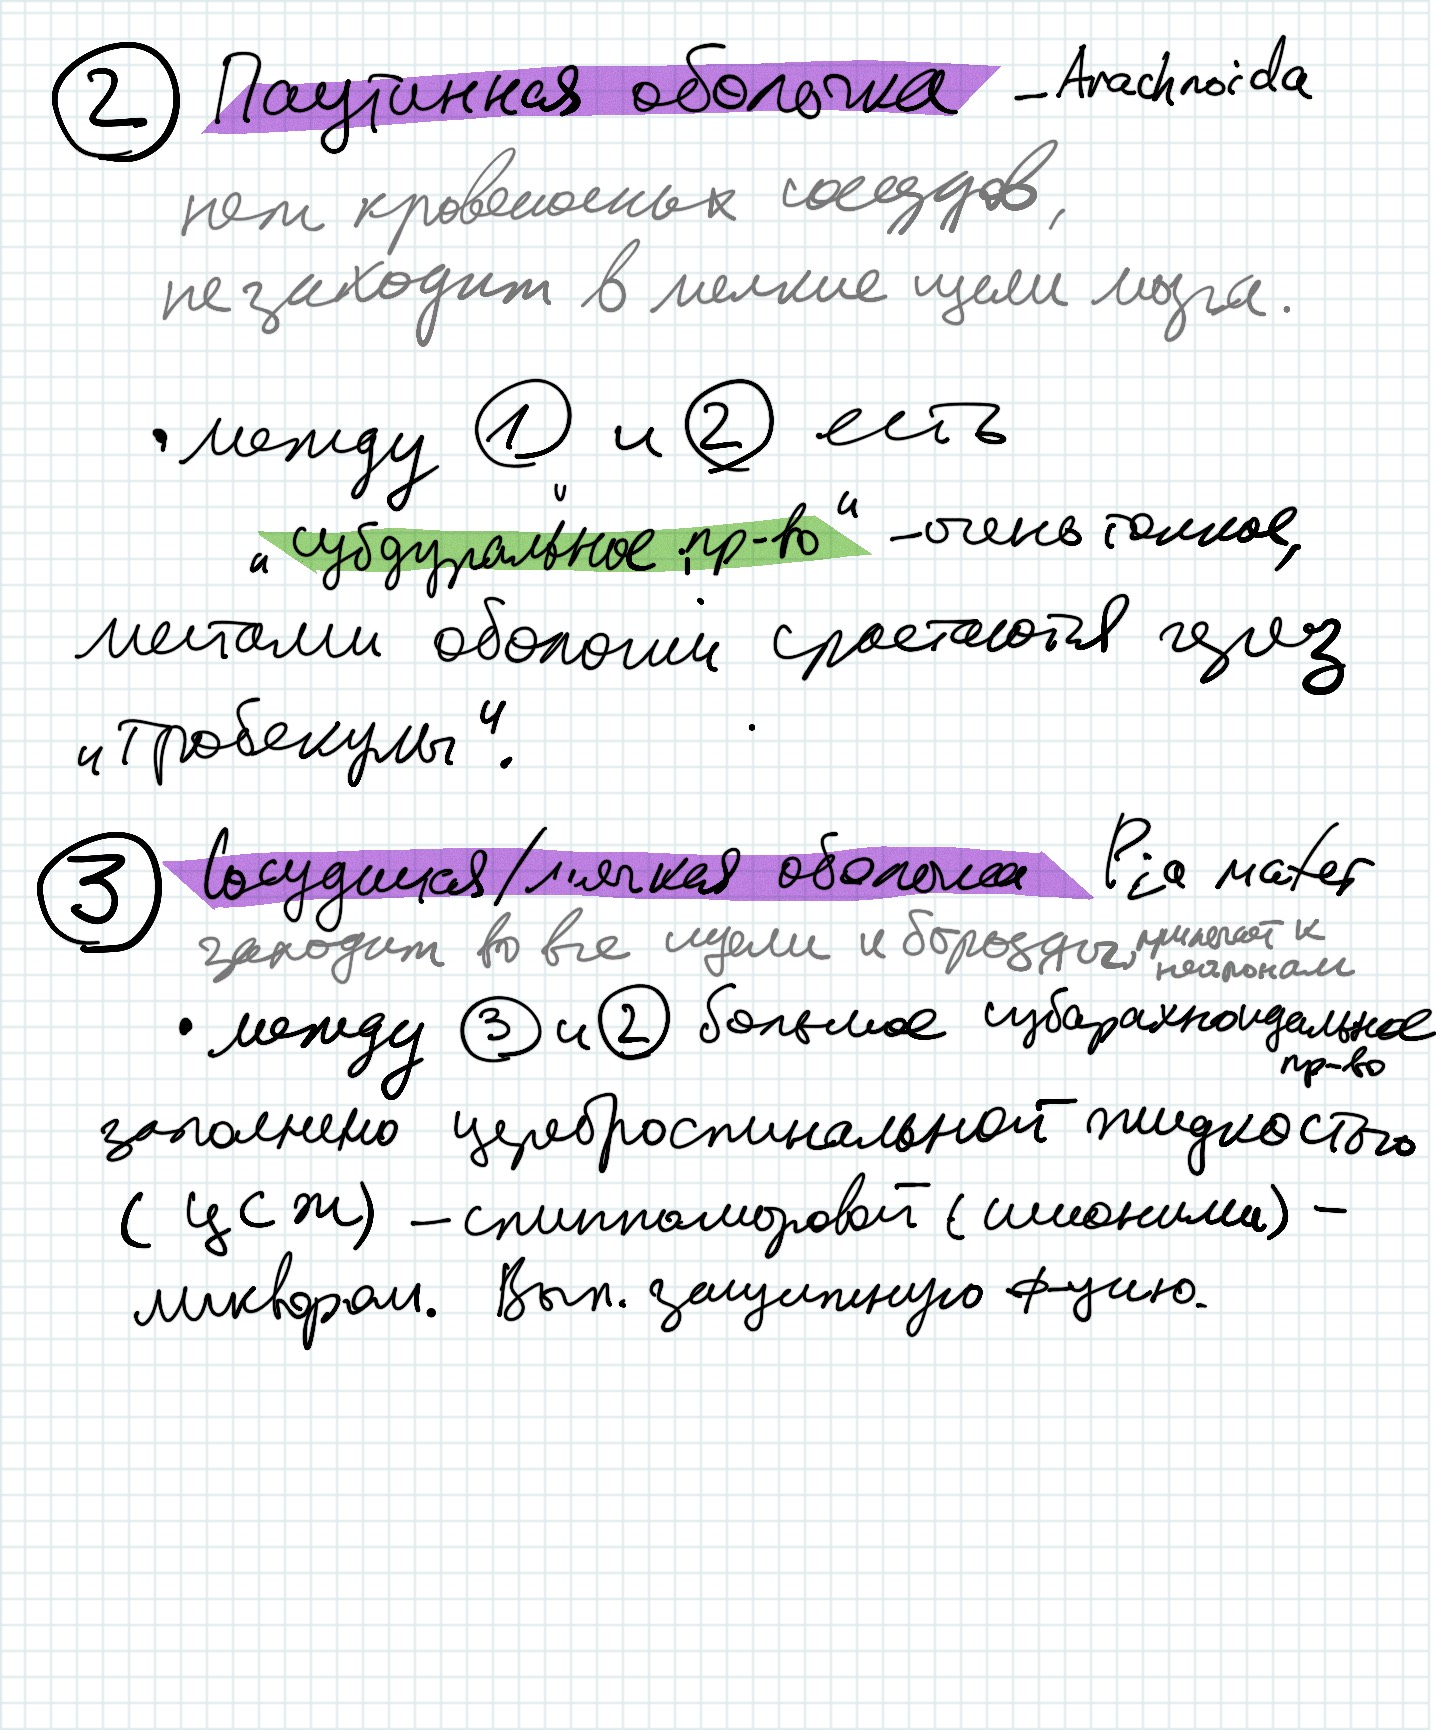 ② Паутинная оболочка - Arachnoida
нет кровеносных сосудов,
не заходит в мелкие щели мозга.
• между ① и ② есть
„субдуральное пр-во“ - очень тонкое,
местами оболочки срастаются через
„тробекулы“.
③ Сосудистая/мягкая оболочка Pia mater
заходит во все щели и борозды, прилегает к
нейронам
• между ③ и ② большое субарахноидальное
пр-во
заполнено цереброспинальной жидкостью
(ЦСЖ) - спинномозговой (синонимы) -
ликвором. Вып. защитную ф-цию.